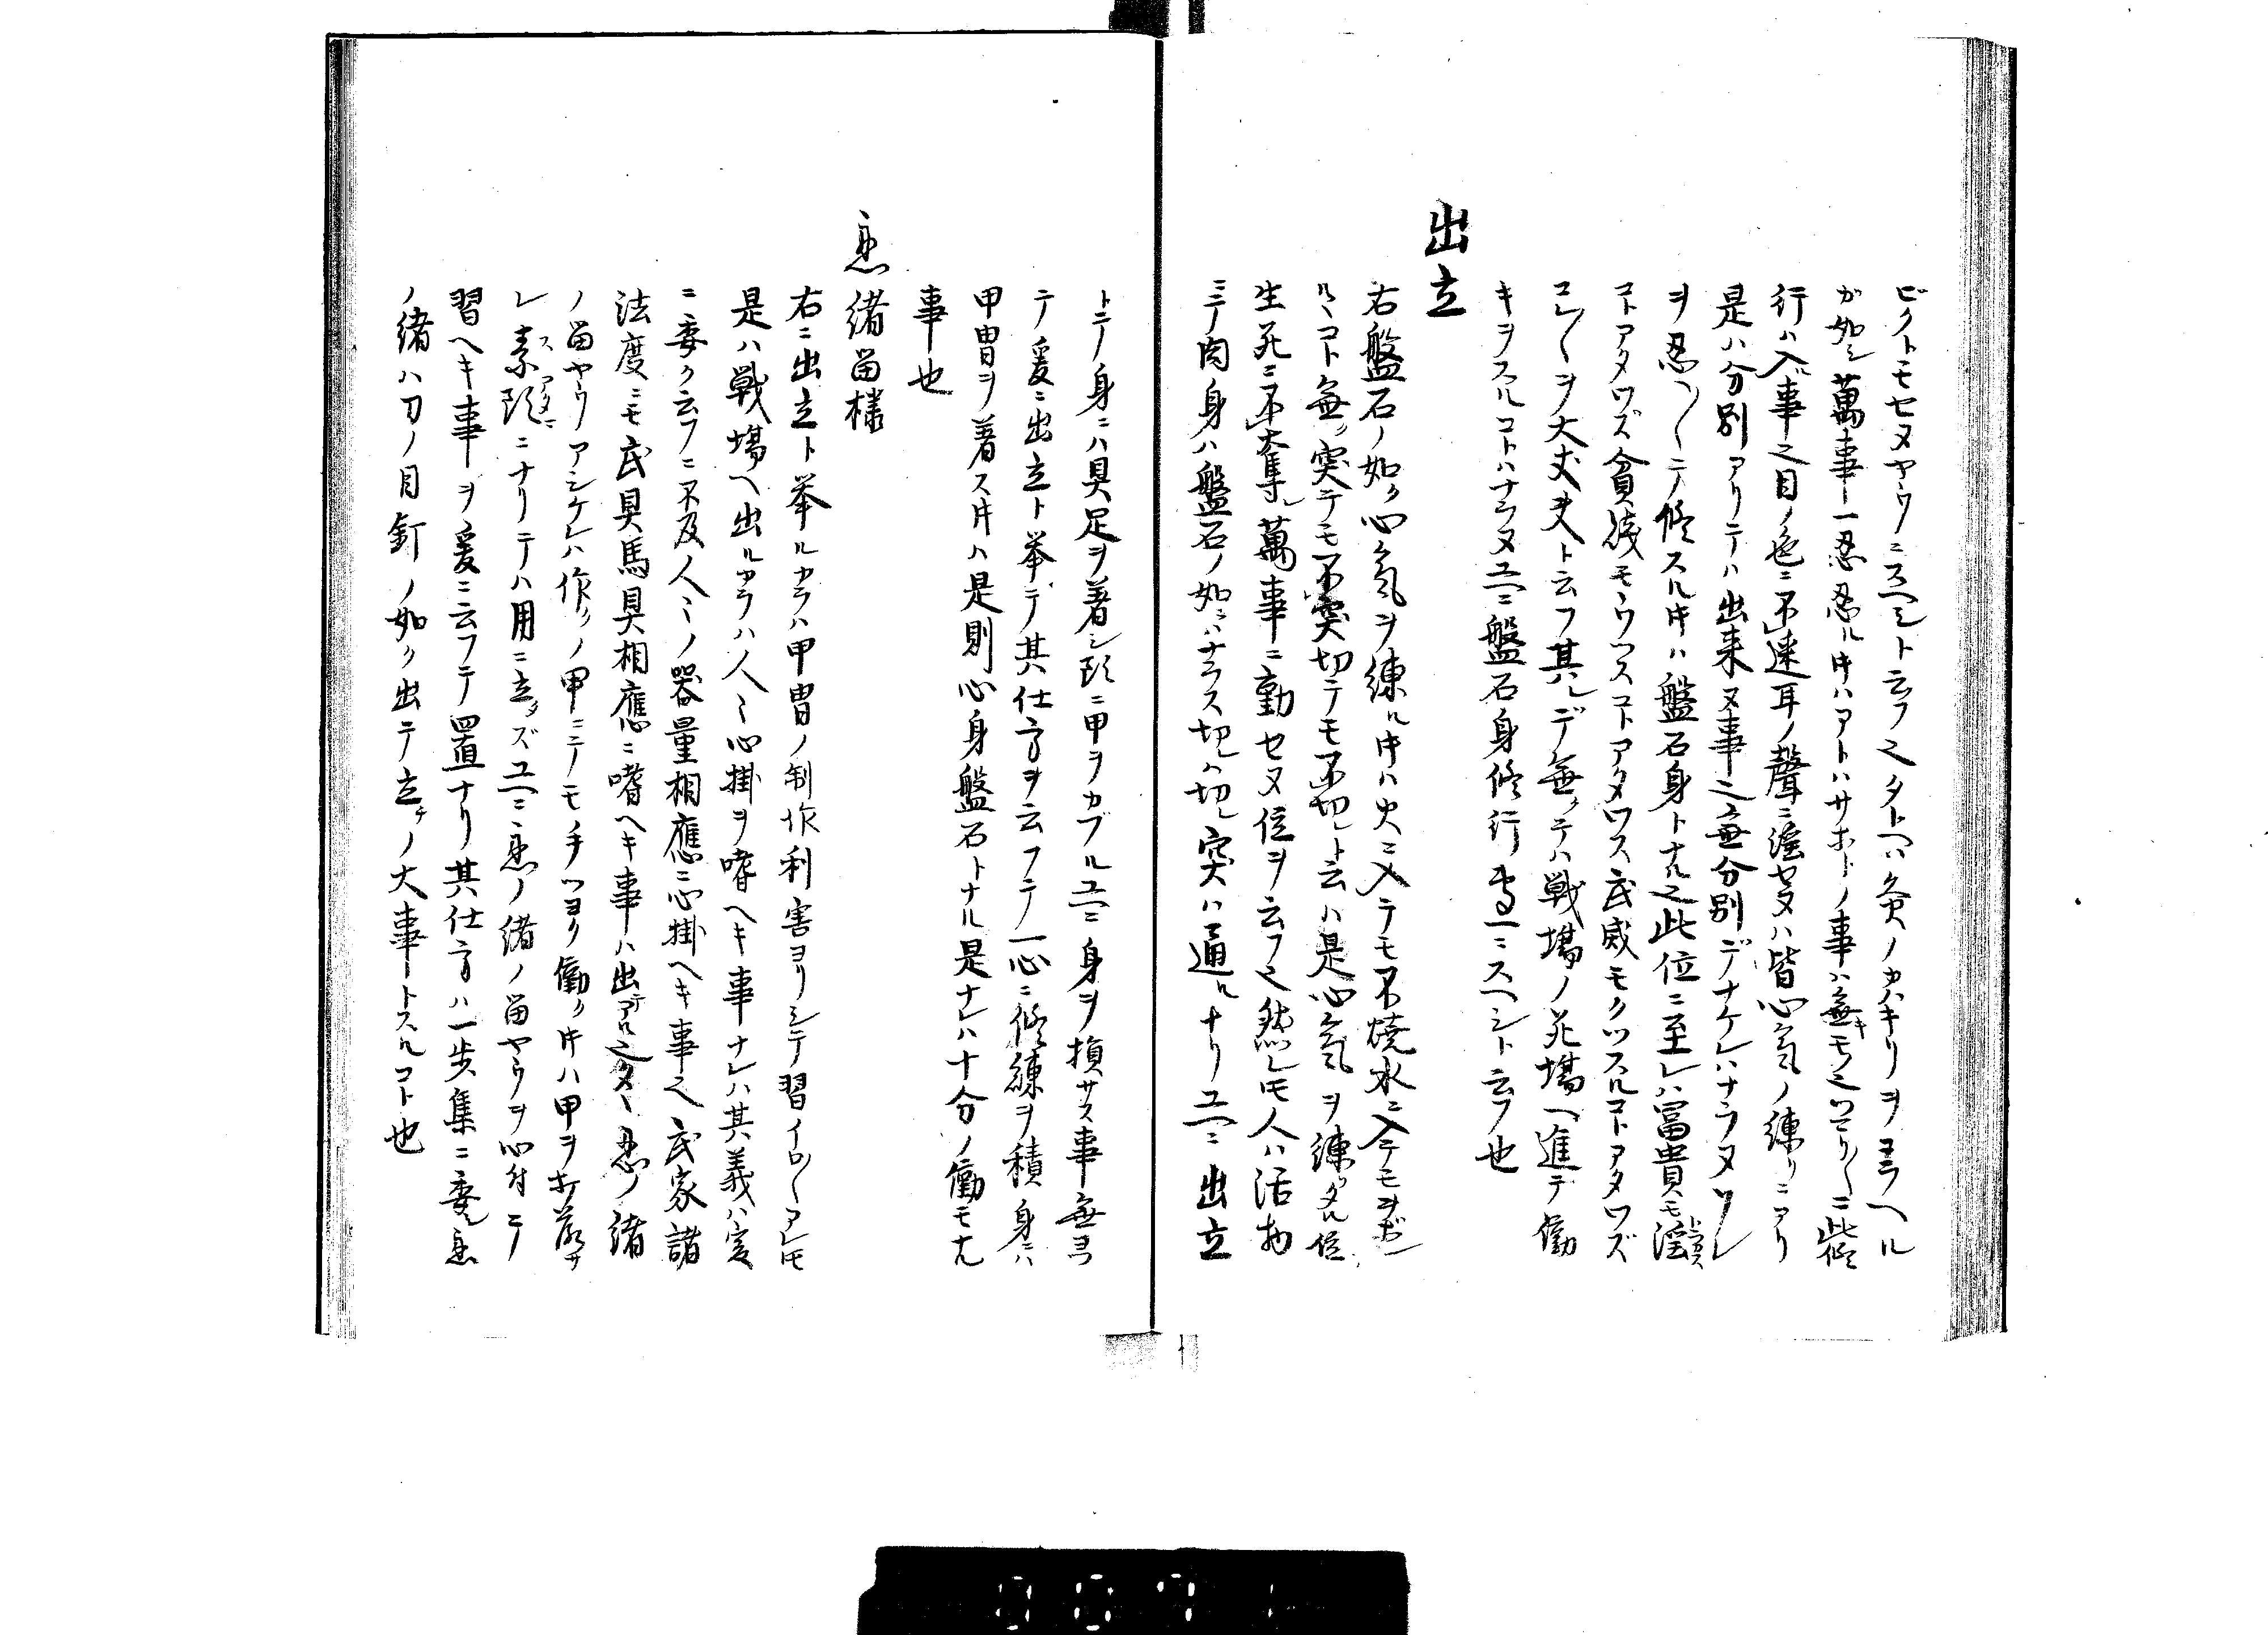 ビクトモセヌヤウニスヘシト云フ也タトヘハ灸ノカハキリヲコラヘル
ガ如シ萬事一忍忍ル時ハアトハサホドノ事ハ無キモノ也ツマリ〳〵ニ此修
行ハ入事也目ノ色ニ不迷耳ノ聲ニ淫セヌハ皆心気ノ練リニアリ
是ハ分別アリテハ出来ヌ事也無分別デナケレハナラヌソレ
ヲ忍ヘ〳〵テ修スル時ハ盤石身トナル也此位ニ至レハ富貴モ淫トラカス
コトアタワズ貧賤モウツスコトアタワス武威モクツスルコトアタワズ
コレヲ大丈夫ト云フ其レデ無クテハ戦場ノ死場ヘ進テ働
キヲスルコトハナラヌユヘニ盤石身修行専一ニスヘシト云フ也
出立
右盤石ノ如ク心気ヲ練ル時ハ火ニ入テモ不焼水ニ入テモヲボレ
ルヽコト無ク突テモ不突切テモ不切レト云ハ是心気ヲ練タル位
生死ニ不奪萬事ニ動セヌ位ヲ云フ也然レトモ人ハ活物
ニテ肉身ハ盤石ノ如ニハナラス切レハ切レ突ハ通ルナリユヘニ出立
トテ身ニハ具足ヲ着シ頭ニ甲ヲカブルユヘニ身ヲ損サス事無ヨ
テ爰ニ出立ト挙テ其仕方ヲ云フテ一心ニ修練ヲ積身ニハ
甲冑ヲ着ス時ハ是則心身盤石トナル是ナレハ十分ノ働モナル
事也
忍緒留様
右ニ出立ト挙ルカラハ甲冑ノ制作利害ヨリシテ習イロ〳〵アレトモ
是ハ戦場ヘ出ルカラハ人々心掛ヲ嗜ヘキ事ナレハ其義ハ爰
ニ委ク云フニ不及人々ノ器量相應ニ心掛ヘキ事也武家諸
法度ニモ武具馬具相應ニ嗜ヘキ事ハ出テアル也タヽ忍ノ緒
ノ留ヤウアシケレハ作リノ甲ニテモノチツヨク働ク時ハ甲ヲ打落サ
レ素頭スアタマニナリテハ用ニ立タズユヘニ忍ノ緒ノ留ヤウヲ心付ニテ
習ヘキ事ヲ爰ニ云フテ置ナリ其仕方ハ一歩集ニ委シ忍
ノ緒ハ刀ノ目釘ノ如ク出テ立チノ大事トスルコト也